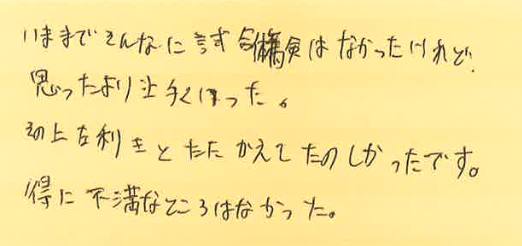 いままでそんなに試合険はなかったけれど、
思ったより上手くいった。
その上左利きとたたかえてたのしかったです。
得に不満なところはなかった。